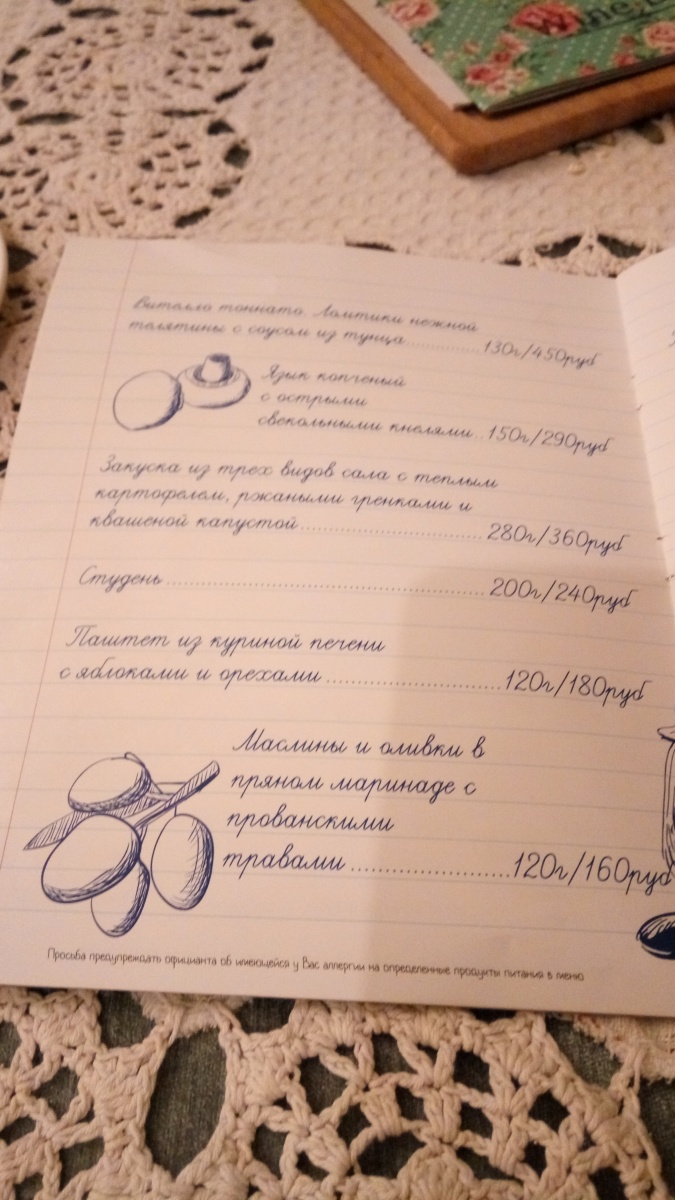 Вителло тоннато. Ломтики нежной
телятины с соусом из тунца.............130г/450руб
Язык копченый
с острыми
свекольными кнелями..150г/290руб
Закуска из трех видов сала с теплым
картофелем, ржаными гренками и
квашеной капустой..............................280г/360руб
Студень....................................................200г/240руб
Паштет из куриной печени
с яблоками и орехами............................120г/180руб
Маслины и оливки в
пряном маринаде с
прованскими
травами..........................120г/160руб
Просьба предупреждать официанта об имеющейся у Вас аллергии на определенные продукты питания в меню